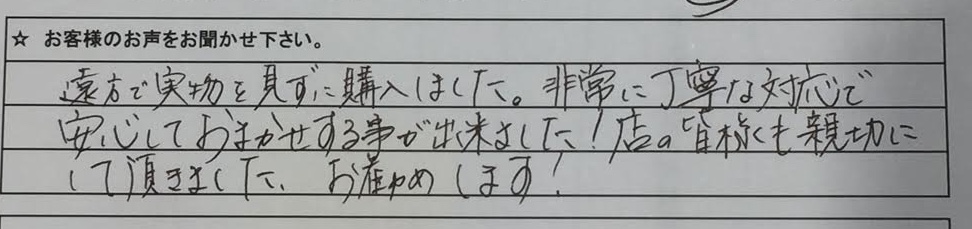 ☆ お客様のお声をお聞かせ下さい。
遠方で実物を見ずに購入しました。非常に丁寧な対応で
安心しておまかせする事が出来ました！店の皆様も親切に
して頂きました、お薦めします！